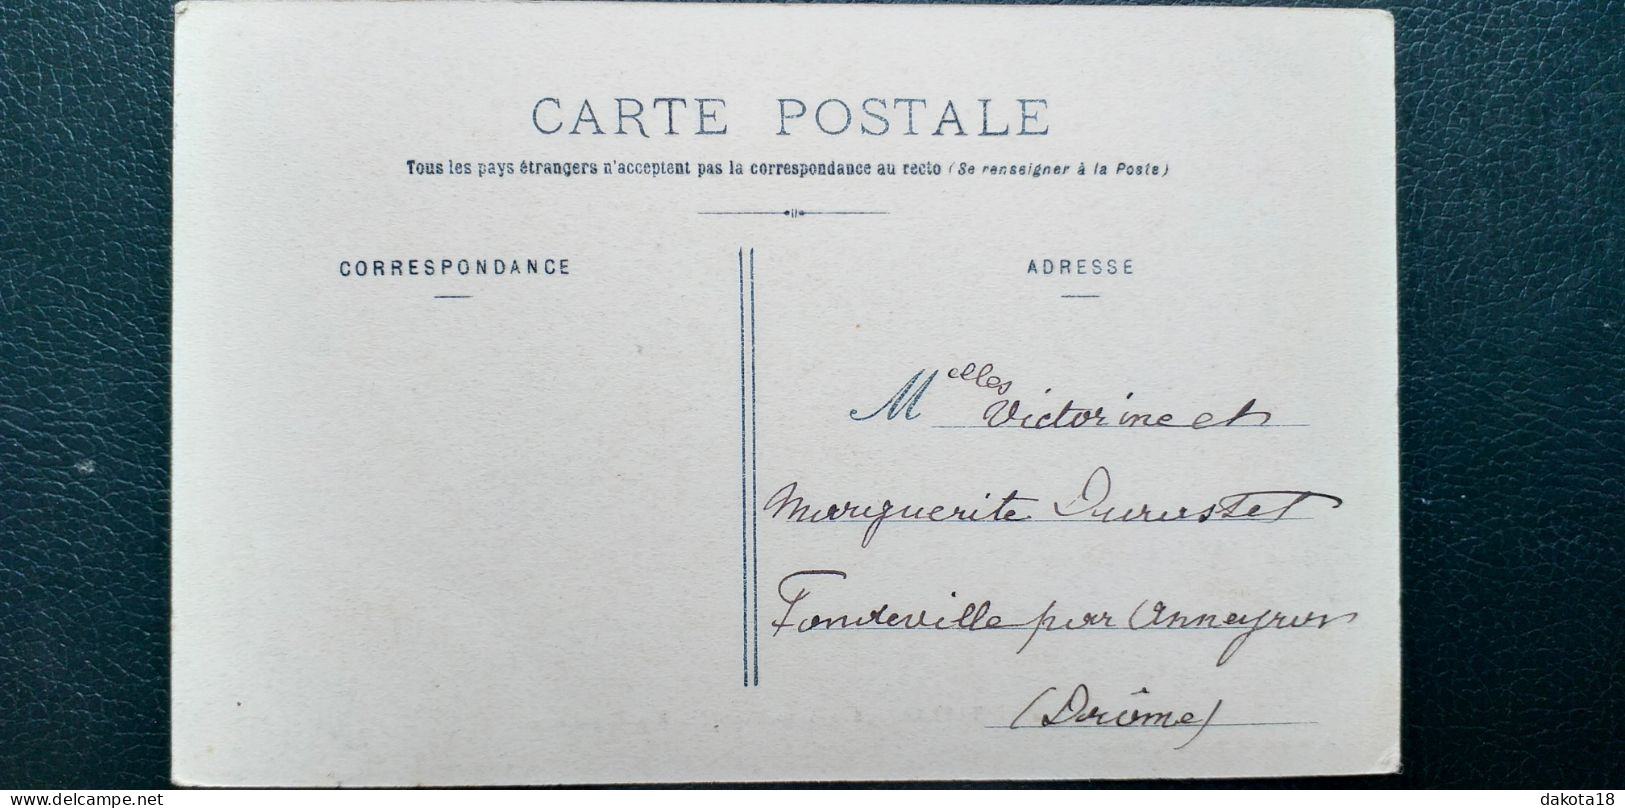 CARTE POSTALE
Tous les pays étrangers n'acceptent pas la correspondance au recto (Se renseigner à la Poste)
CORRESPONDANCE
ADRESSE
Melles Victorine et
Marguerite Durusset
Fondeville par Anneyron
(Drôme)
delcampe.net
dakota18